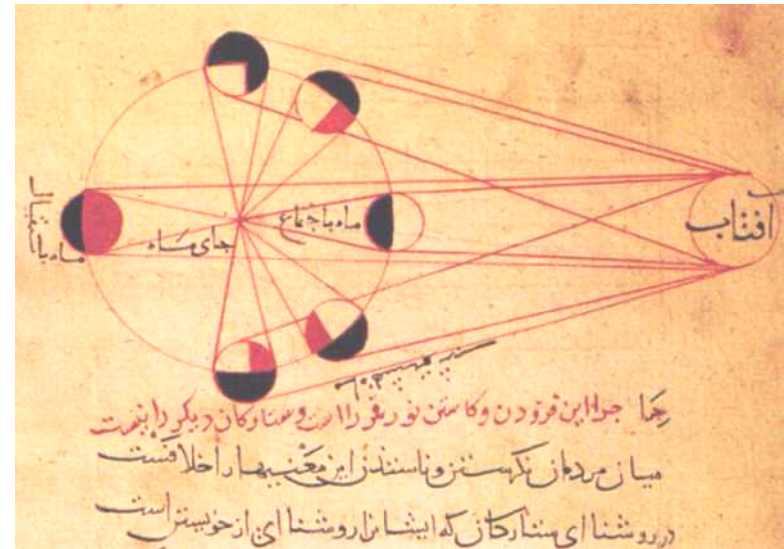 آفتاب
ماه باجتماع
جای ماه
ماه باستقبال
جرا این فزودن وکاستن نور قمر را است وستارکان دیکر را نیست
میان مردمان این معنیها را خلافست
در روشنا ای ستارکان که ایشانرا روشنا ای از خویشتن است